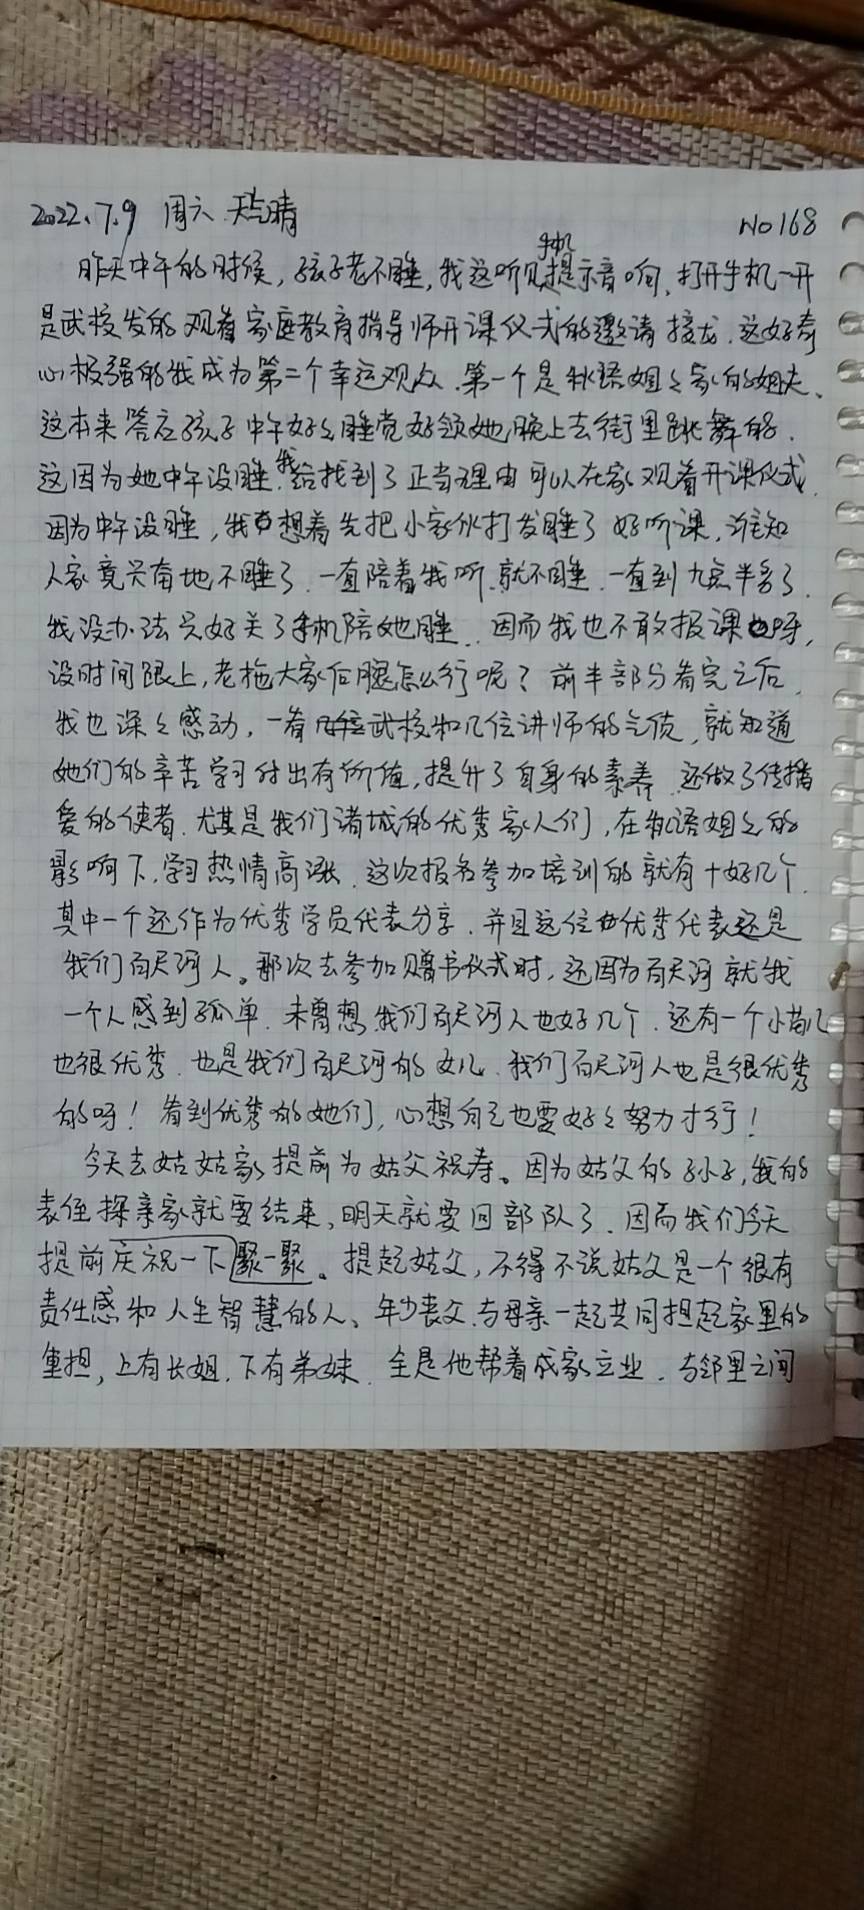 2022.7.9 周六 天气晴 No168
昨天中午的时候，孩子老不睡，我这听见手机提示音响，打开手机一开
是武校发的观看家庭教育指导师开课仪式的邀请接龙．这好奇
心极强的我成为第二个幸运观众．第一个是秋语姐姐家的姐夫、
这本来答应孩子中午好好睡觉好领她晚上去街里跳舞的．
这因为她中午没睡，我给找到了正当理由可以在家观看开课仪式．
因为中午没睡，我想着先把小家伙打发睡了好听课，谁知
人家竟兴奋地不睡了．一直陪着我听．就不睡．一直到九点半多了．
我没办法只好关了手机陪她睡．因而我也不敢报课呀，
没时间跟上，老拖大家后腿怎么行呢？前半部分看完之后，
我也深深感动，一看武校和几位讲师的气质，就知道
她们的辛苦学习付出有价值，提升了自身的素养．还做了传播
爱的使者．尤其是我们诸城的优秀家人们，在秋语姐姐的
影响下，学习热情高涨．这次报名参加培训的就有十好几个．
其中一个还作为优秀学员代表分享．并且这位优秀代表还是
我们百尺河人。那次去参加赠书仪式时，还因为百尺河就我
一个人感到孤单．未曾想我们百尺河人也好几个．还有一个小苗儿
也很优秀．也是我们百尺河的女儿．我们百尺河人也是很优秀
的呀！看到优秀的她们，心想自己也要好好努力才行！
今天去姑姑家提前为姑父祝寿。因为姑父的孙子，我的
表侄探亲家就要结束，明天就要回部队了．因而我们今天
提前庆祝一下聚一聚。提起姑父，不得不说姑父是一个很有
责任感和人生智慧的人、年少丧父．与母亲一起共同担起家里的
重担，上有长姐．下有弟妹．全是他帮着成家立业．与邻里之间